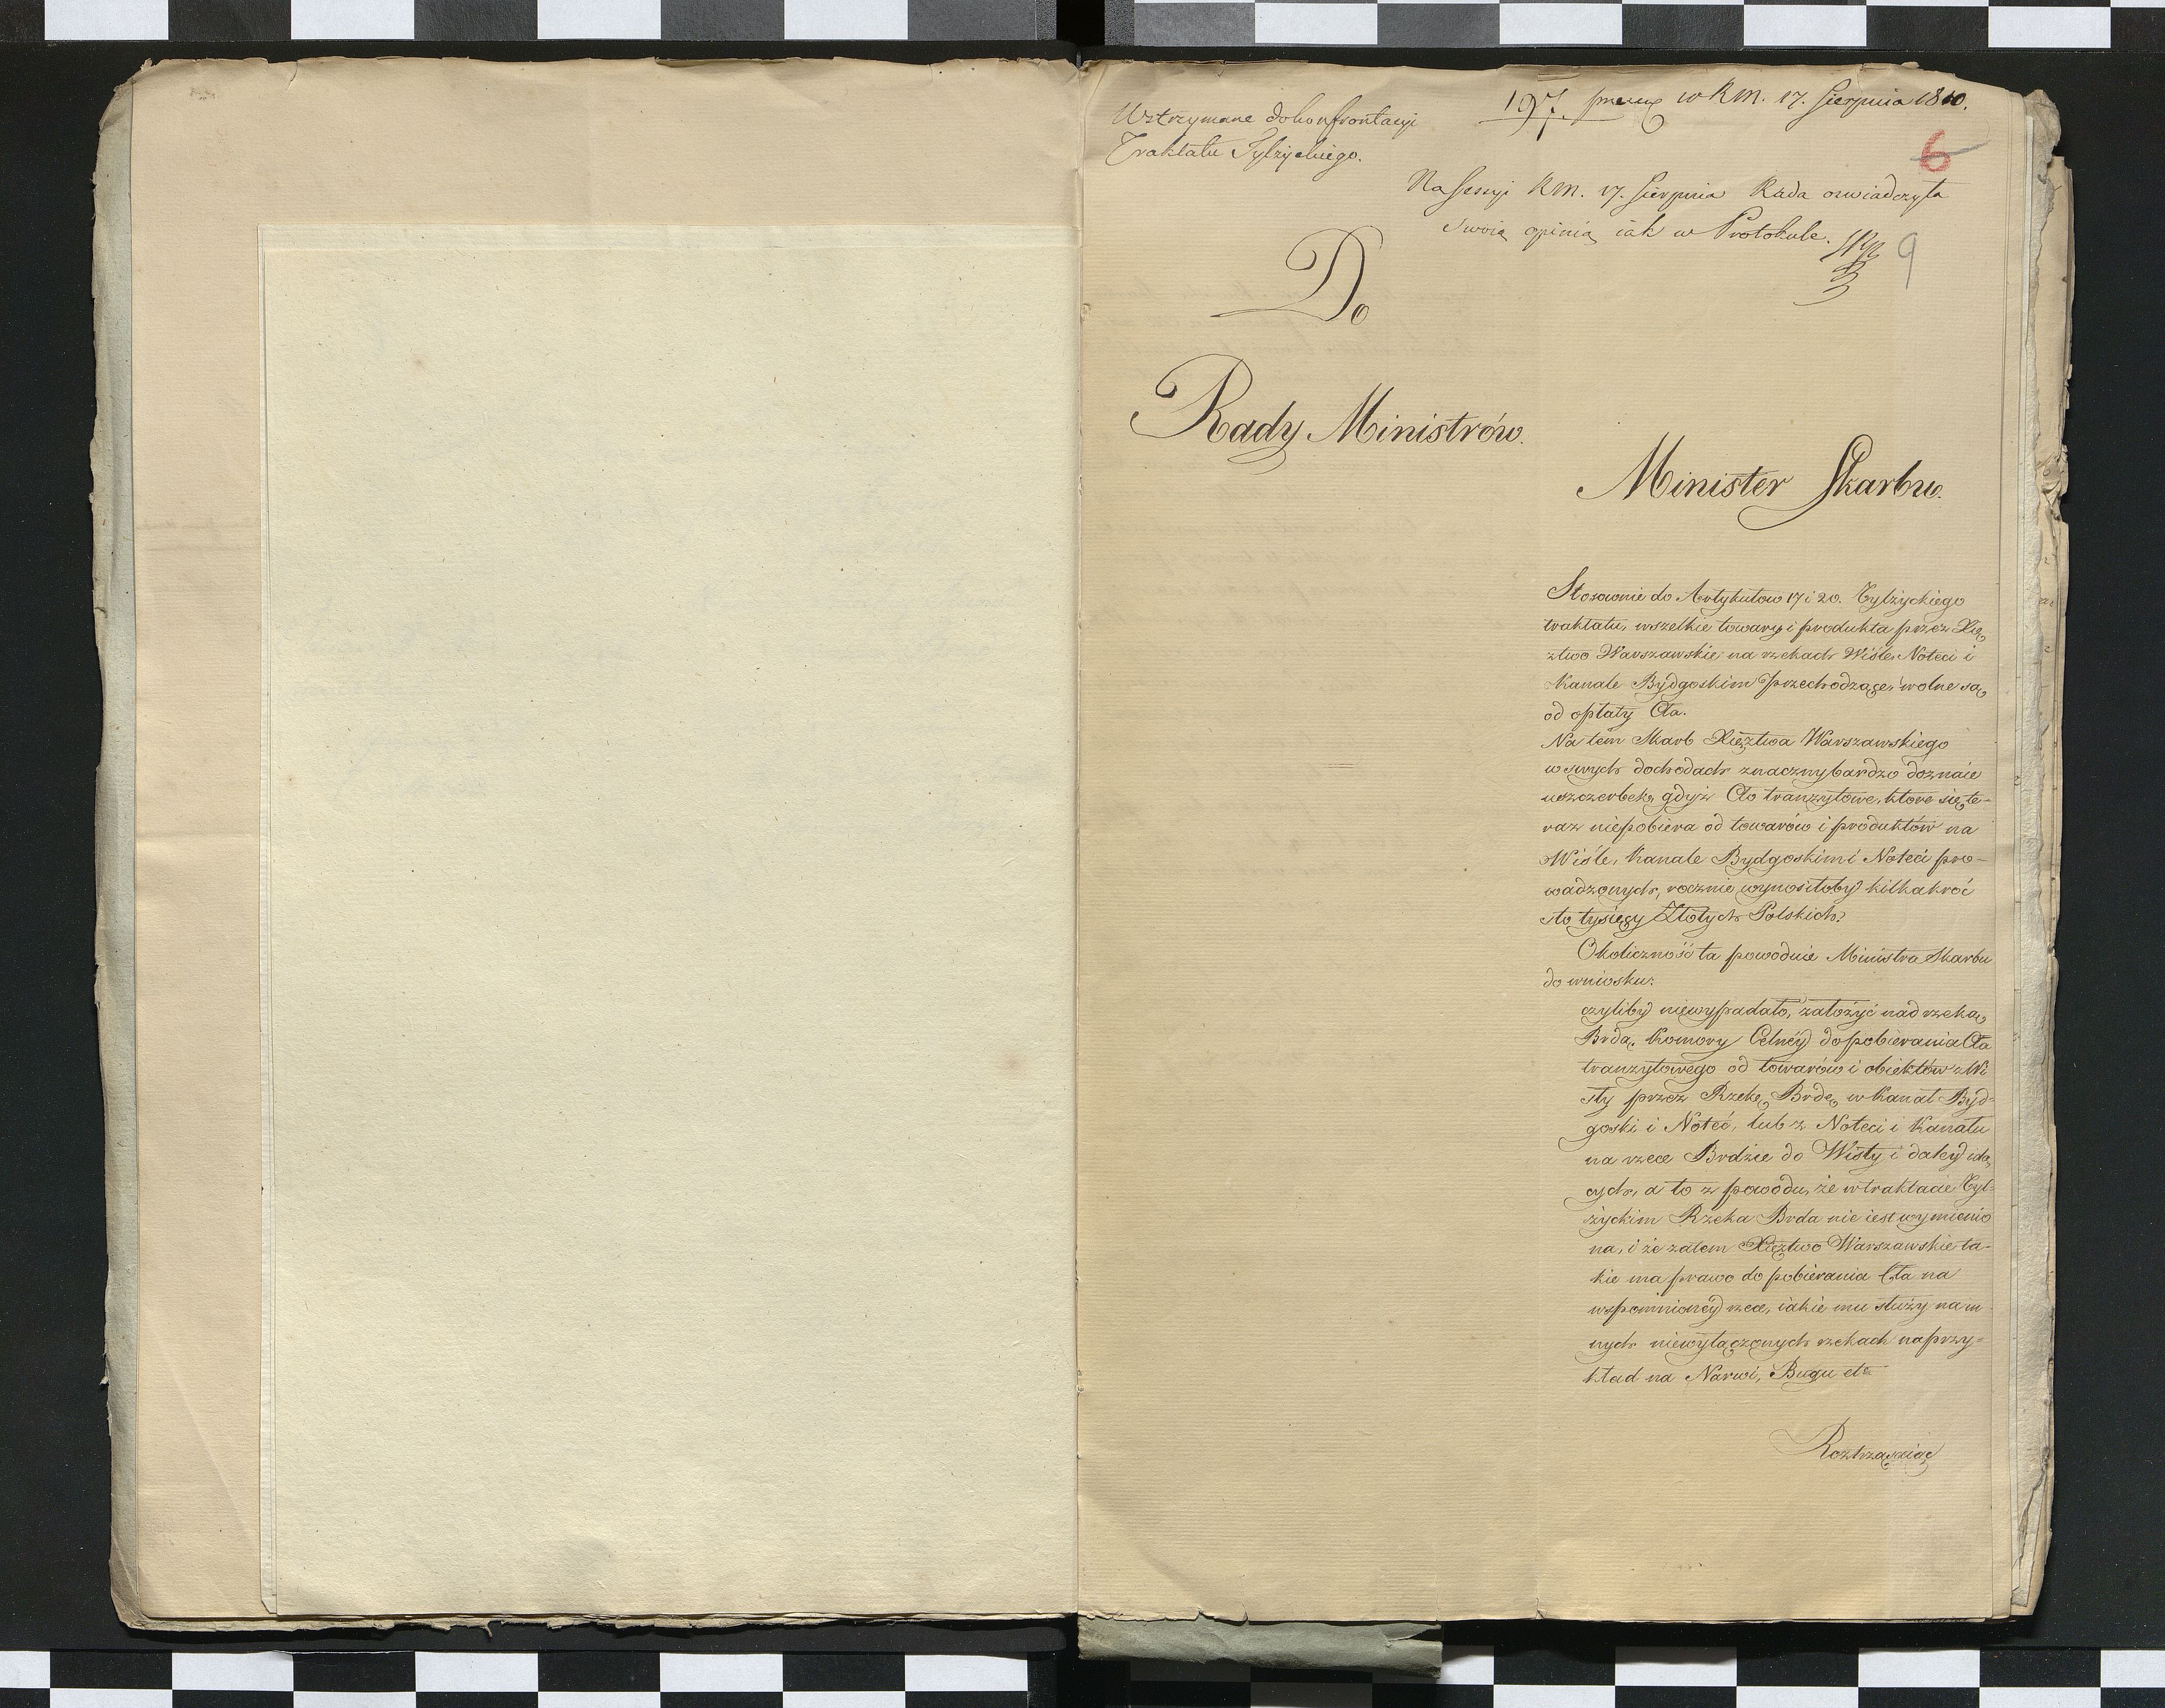 Wstrzymane do konfrontacyi
Traktatu Tylżyckiego.
197. w R M. 17. Sierpnia 1810.
6
Na Sessyi R M. 17. Sierpnia Rada oswiadczyła
swoią opinią iak w Protokule.
9
Do
Rady Ministrów.
Minister Skarbu.
Stosownie do Artykułow 17 i 20. Tylżyckiego
traktatu, wszelkie towary i produkta przez Xię,
ztwo Warszawskie na rzekach Wiśle, Noteci i
Kanale Bydgoskim przechodzące, wolne są
od opłaty Cła.
Na tém Skarb Xięztwa Warszawskiego
w swych dochodach znaczny bardzo doznaie
uszczerbek, gdyż Cło tranzytowe, ktore się te-
raz niepobiera od towarów i produktów na
Wiśle, Kanale Bydgoskim i Noteci pro-
wadzonych, rocznie wynosiłoby kilkakroć
sto tysięcy Złotych Polskich.
Okoliczność ta powoduie Ministra Skarbu
do wniosku:
czyliby niewypadało, założyć nad rzeką
Brdą, Komory Celnéy do pobierania Cła
tranzytowego od towarów i obiektów z Wi-
sły przez Rzekę Brdę w Kanał Byd-
goski i Noteć, lub z Noteci i Kanału
na rzece Brdzie do Wisły i daléy idą,
cych, a to z powodu, że w traktacie Tyl-
życkim Rzeka Brda nie iest wymienio
na, i że zatem Xięztwo Warszawskie ta-
kie ma prawo do pobiérania Cła na
wspomnionéy rzece, iakie mu służy na in
nych niewyłączonych rzekach naprzy-
kład na Narwi, Bugu etc
Roztrząsaiąc